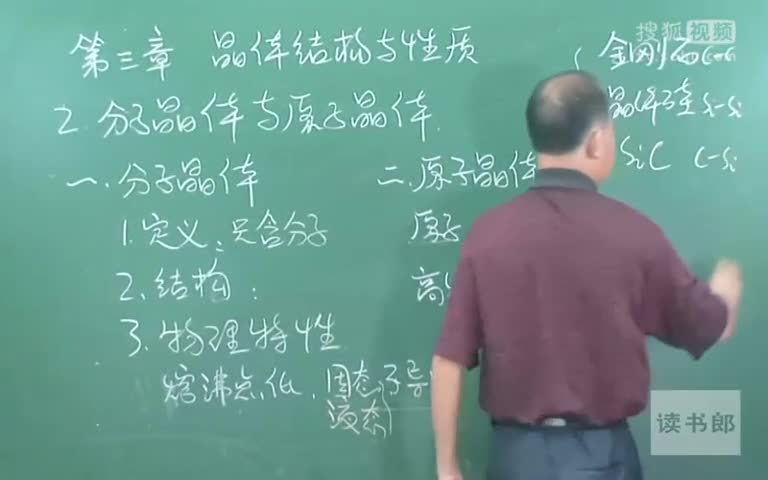 搜狐视频
第三章 晶体结构与性质
2.分子晶体与原子晶体.
一.分子晶体
1.定义:只含分子
2.结构:
3.物理特性
熔沸点低.固态不导
液态
二.原子晶体
原子
高
金刚石C-C
晶体硅Si-Si
SiC C-Si
读书郎